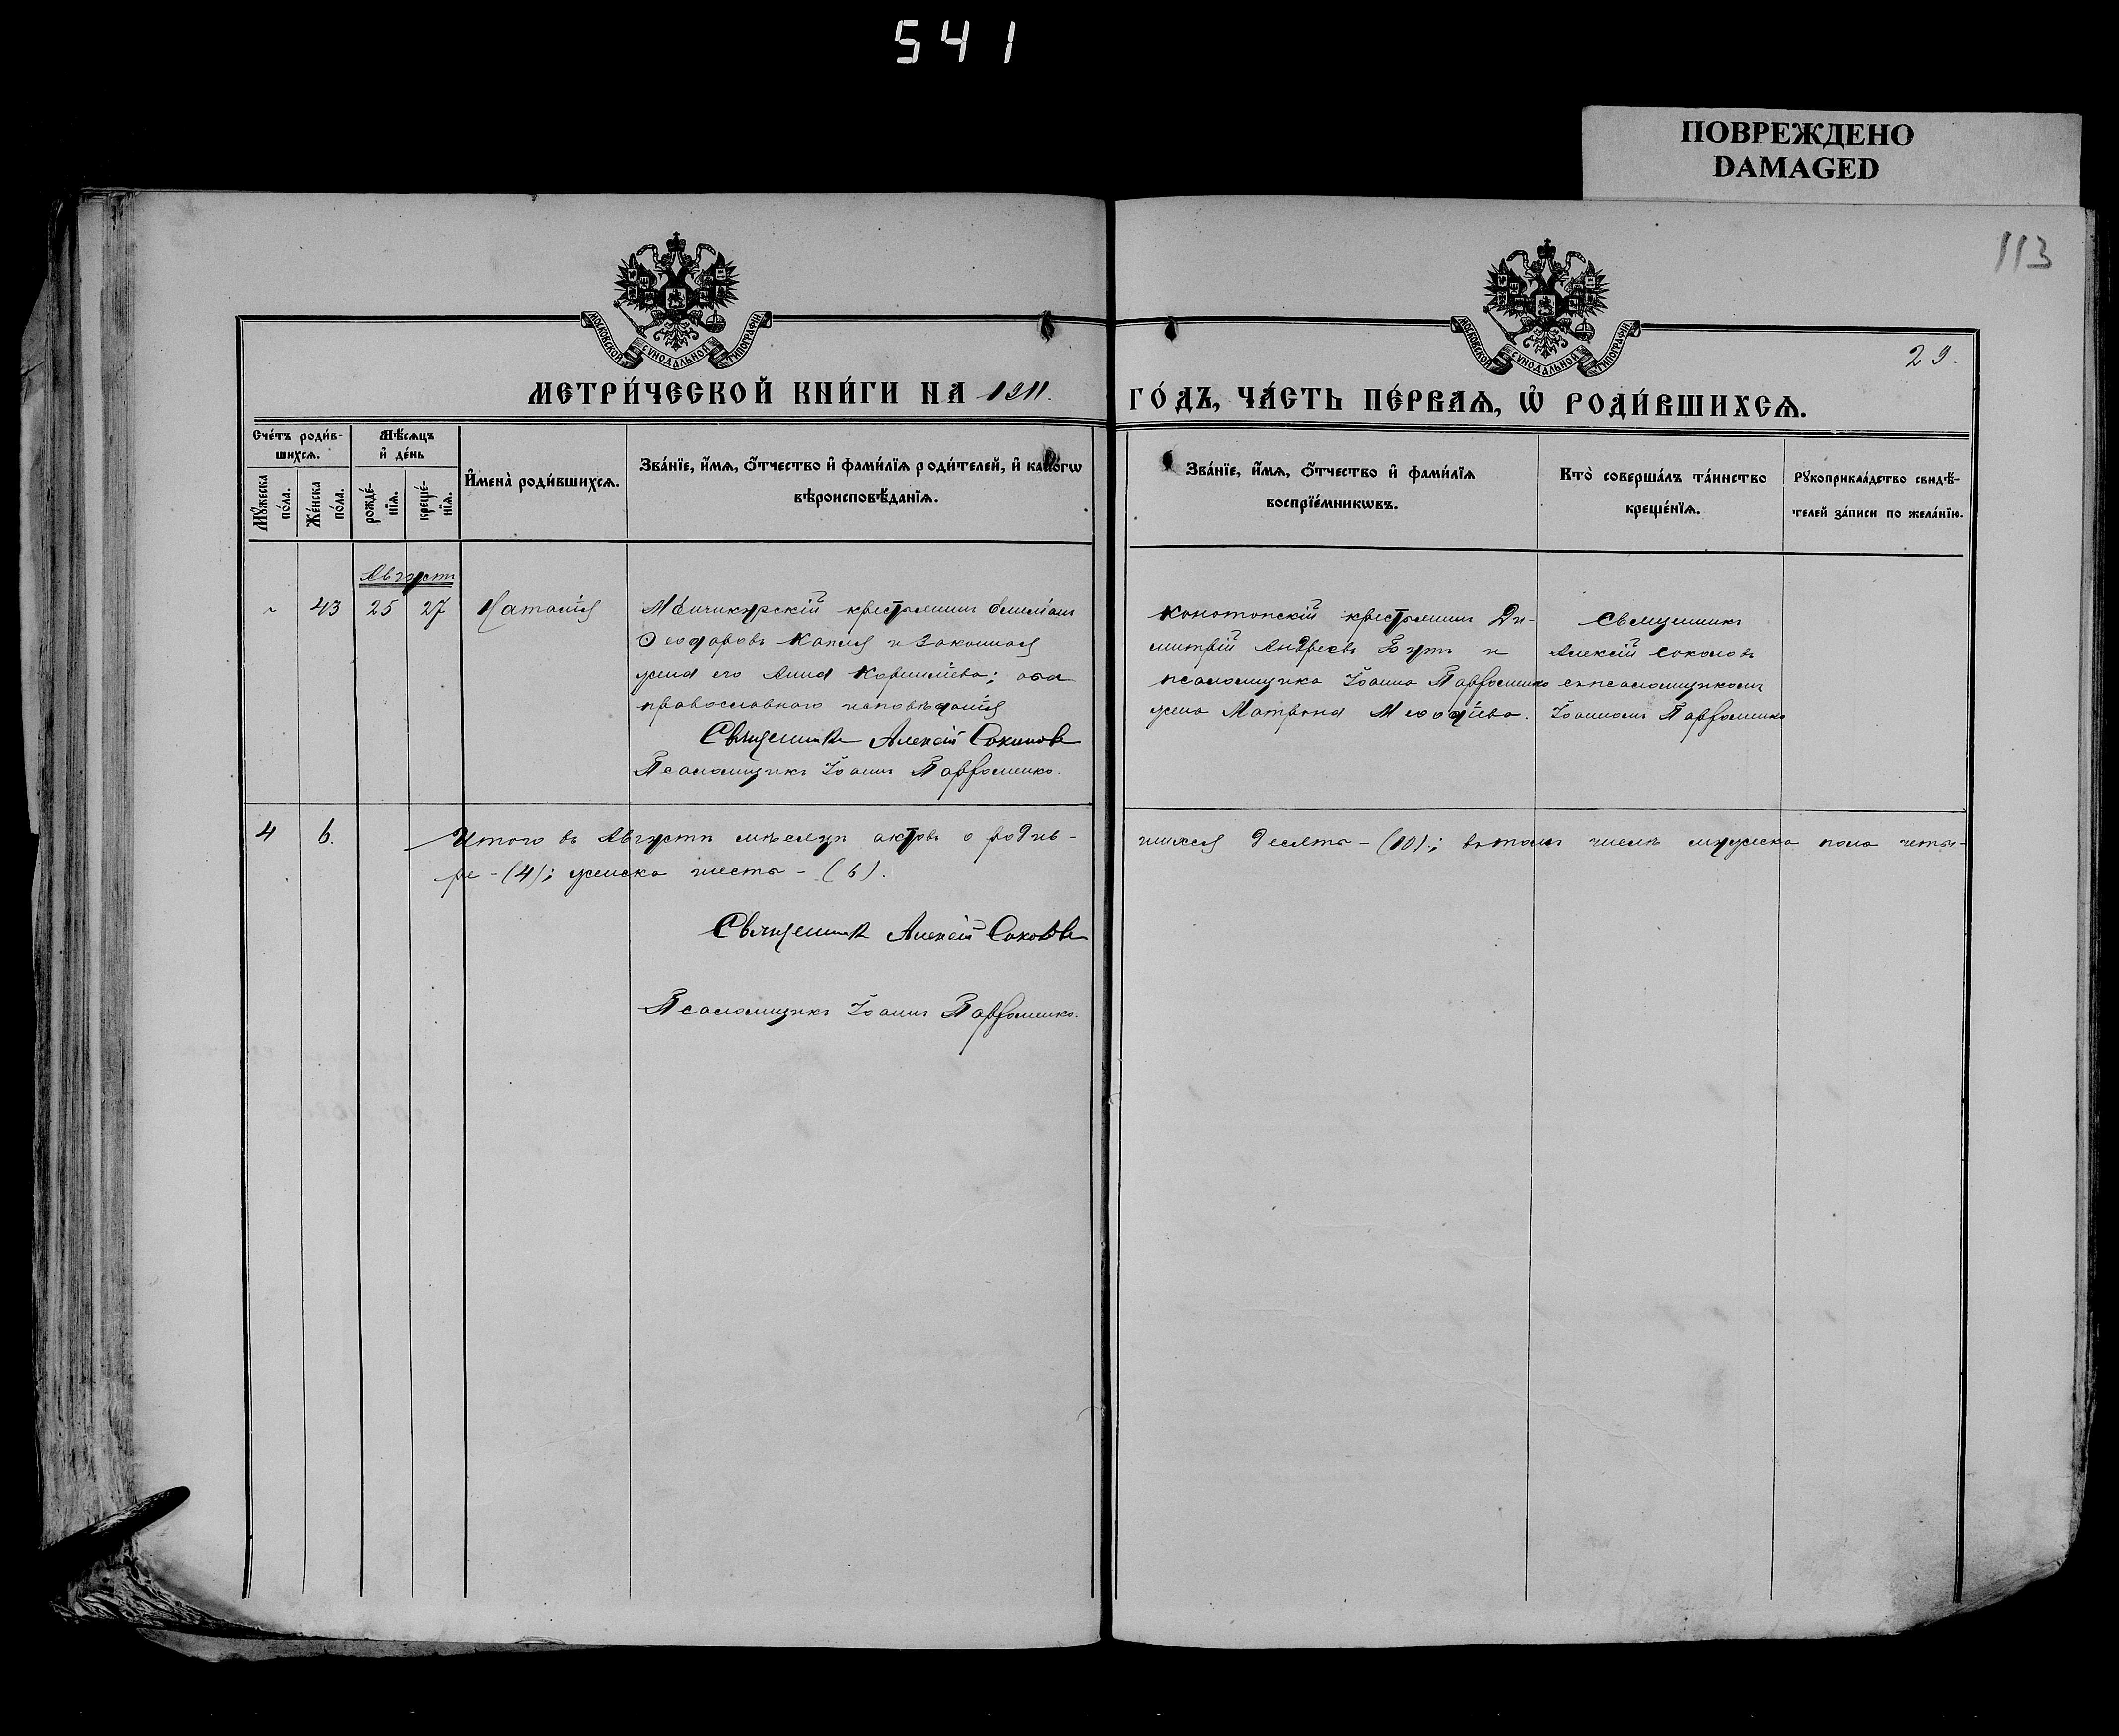 541
ПОВРЕЖДЕНО
DAMAGED
113
МОСКОВСКОЙ СѴНОДАЛЬНОЙ ТИПОГРАФІИ
МОСКОВСКОЙ СѴНОДАЛЬНОЙ ТИПОГРАФІИ
29.
МЕТРИ́ЧЕСКОЙ КНИ́ГИ НА 1911.
ГО́ДЪ, ЧА́СТЬ ПЕ́РВАѦ, Ѡ҆ РОДИ́ВШИХСѦ.
Сче́тъ роди́в-
шихсѧ.
Мꙋ́жеска
по́ла.
Же́нска
по́ла.
Мѣ́сѧцъ
и҆ де́нь
рожде́-
нїѧ.
креще́-
нїѧ.
И҆мена̀ роди́вшихсѧ.
Зва́нїе, и҆́мѧ, ѻ҆́тчество и҆ фами́лїѧ роди́телей, и҆ како́гѡ
вѣроисповѣ́данїѧ.
Зва́нїе, и҆́мѧ, ѻ҆́тчество и҆ фами́лїѧ
воспрїе́мникѡвъ.
Кто̀ соверша́лъ та́инство
креще́нїѧ.
Рꙋкоприкла́дство свидѣ́-
телей за́писи по жела́нїю.
Августъ
43 25 27 Наталія
крестьянинъ Емеліанъ
Ѳеодоровъ Капля и законная
жена его Анна Корнилiева; оба
православнаго исповѣданія
Священникъ Алексій Соколовъ
Псаломщикъ Іоаннъ Парфоменко.
Конотопскій крестьянинъ Ди-
митрій Андреевъ и
псаломщика Іоанна Парфоменко
жена Матрона Меѳодіева.
Священникъ
Алексій Соколовъ
съ псаломщикомъ
Іоанномъ Парфоменко
4 6. Итого въ Августѣ мѣсяцѣ актовъ о родив-
шихся десять - (10); въ томъ числѣ мужеска пола четы-
ре - (4); женска шесть - (6).
Священникъ Алексій Соколовъ
Псаломщикъ Іоаннъ Парфоменко.